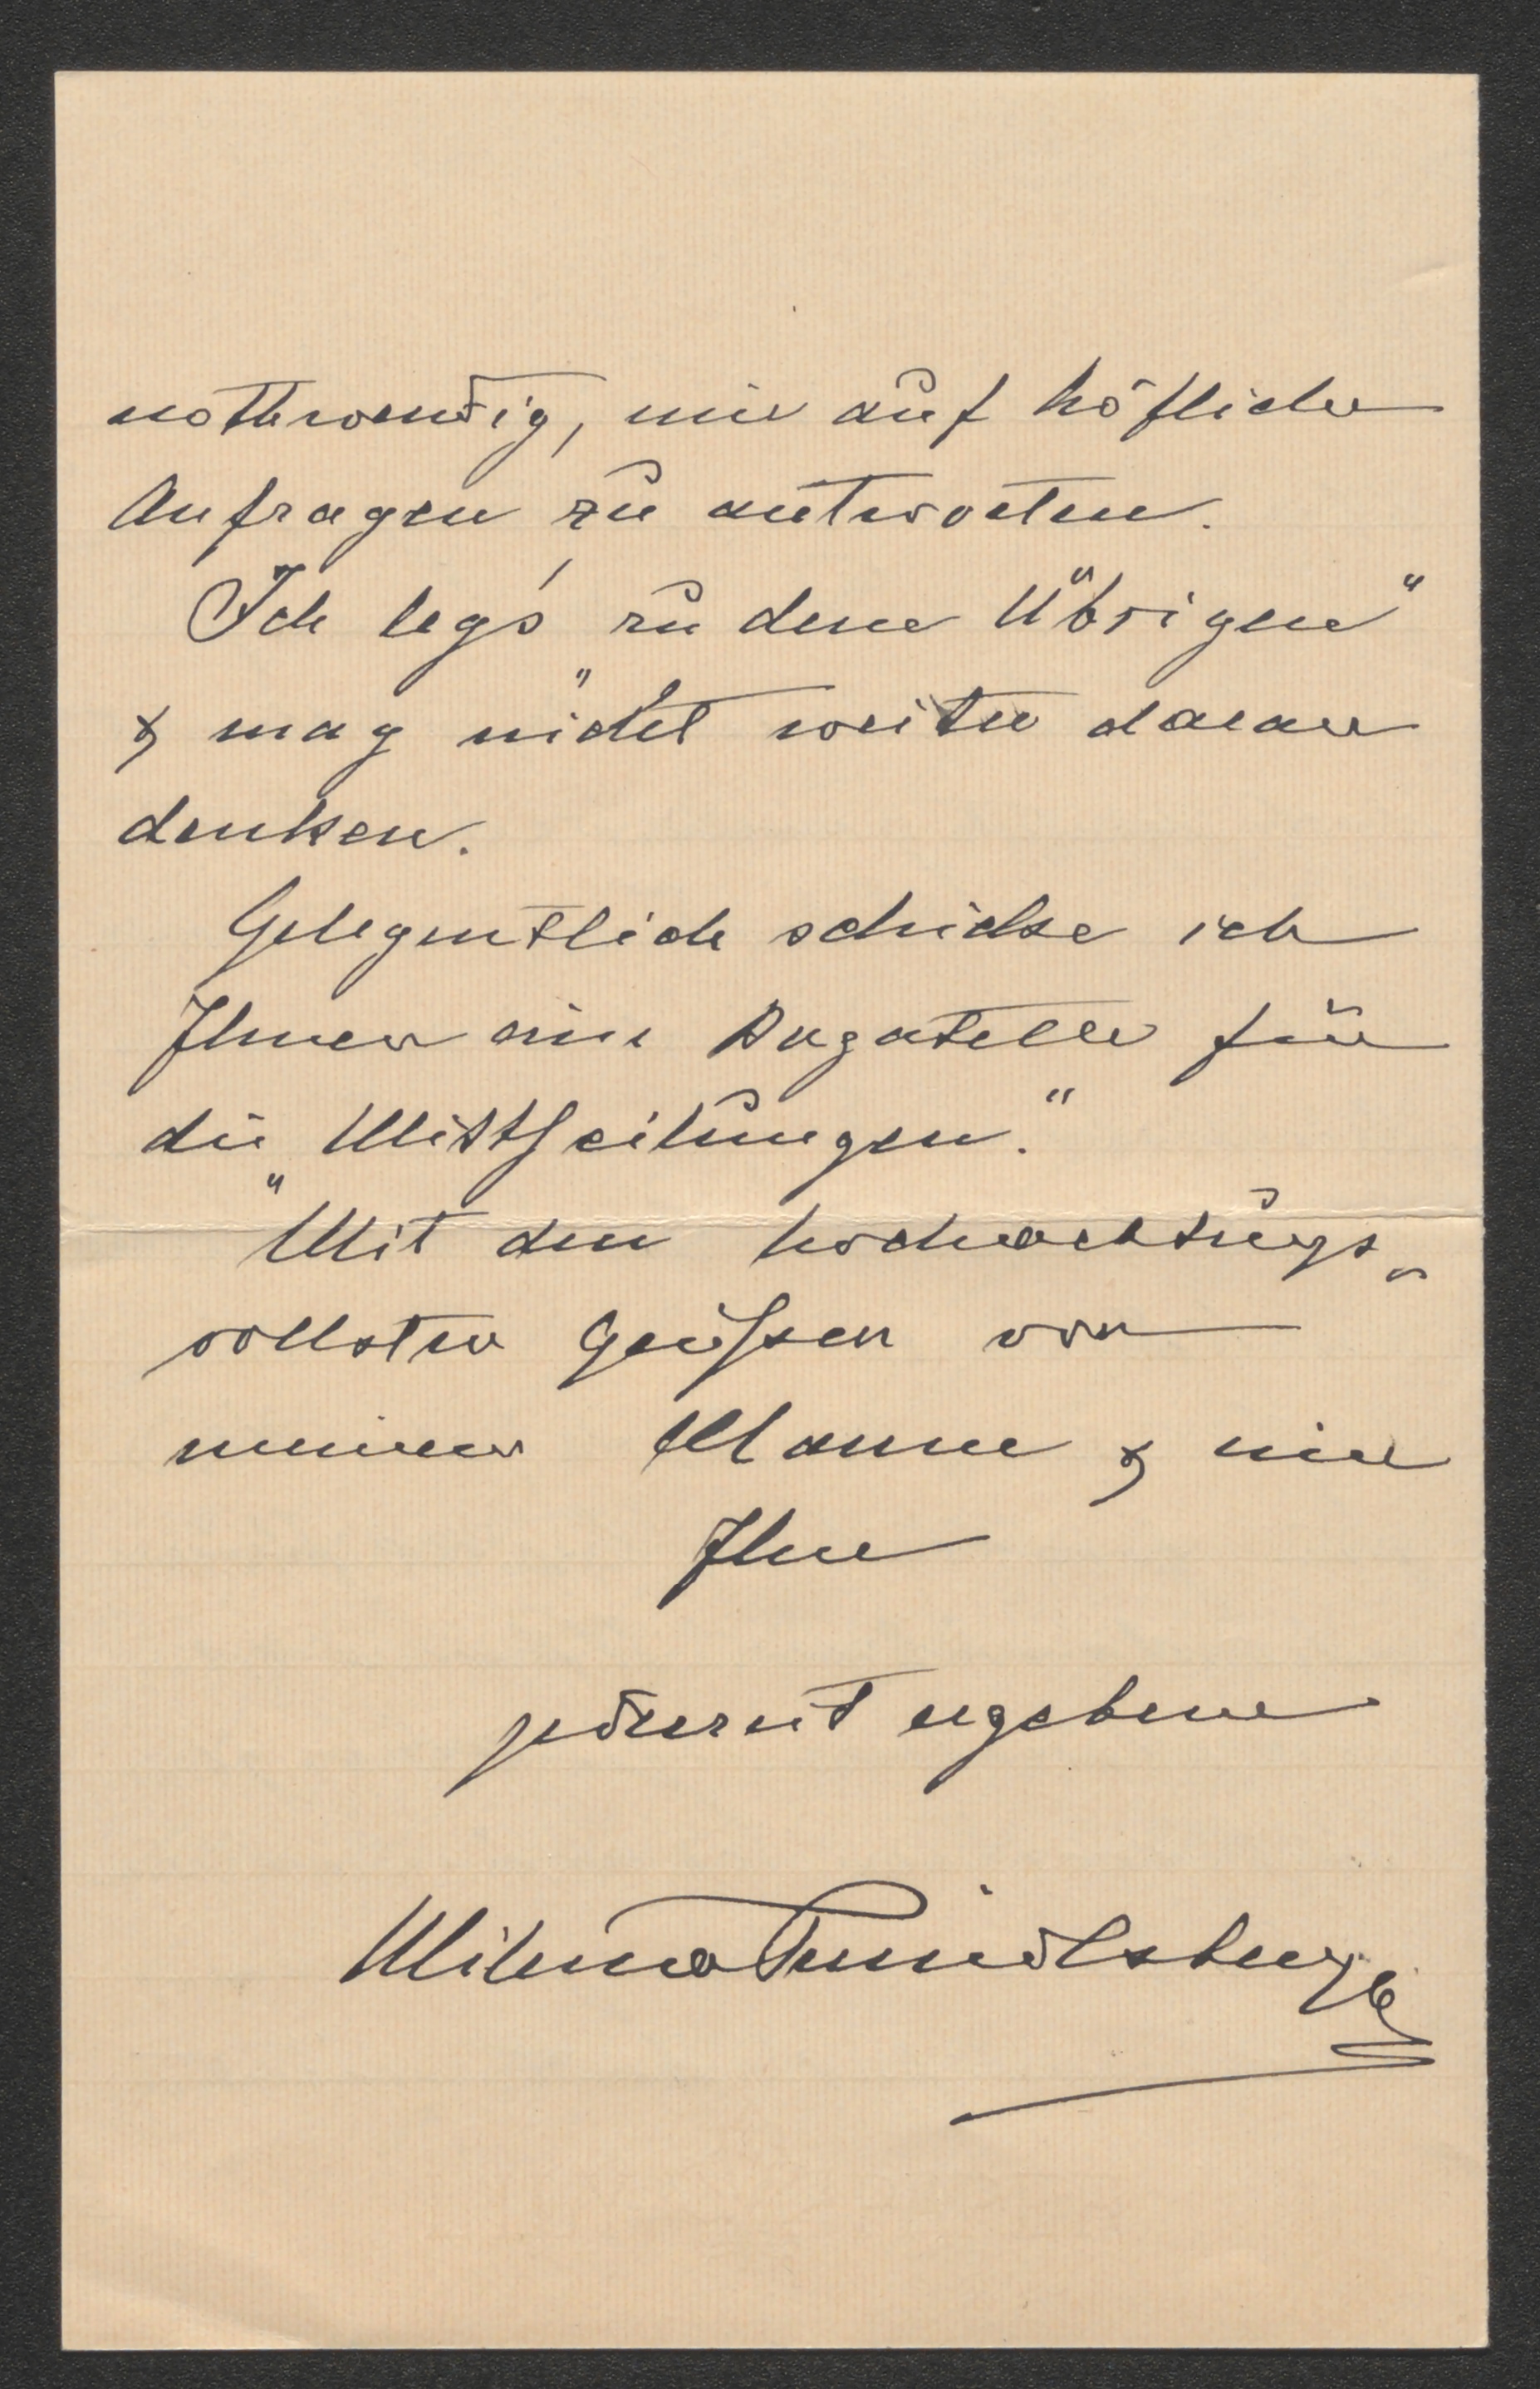 nothwendig, mir auf höfliche
Anfragen zu antworten.
Ich leg's zu dem „Übrigen"
& mag nicht weiter daran
denken.
Gelegentlich schicke ich
Ihnen eine Bagatelle für
die „Mittheilungen."
Mit den hochachtungs-
vollsten Grüßen von
meinem Manne & mir
Ihre
jederzeit ergebene